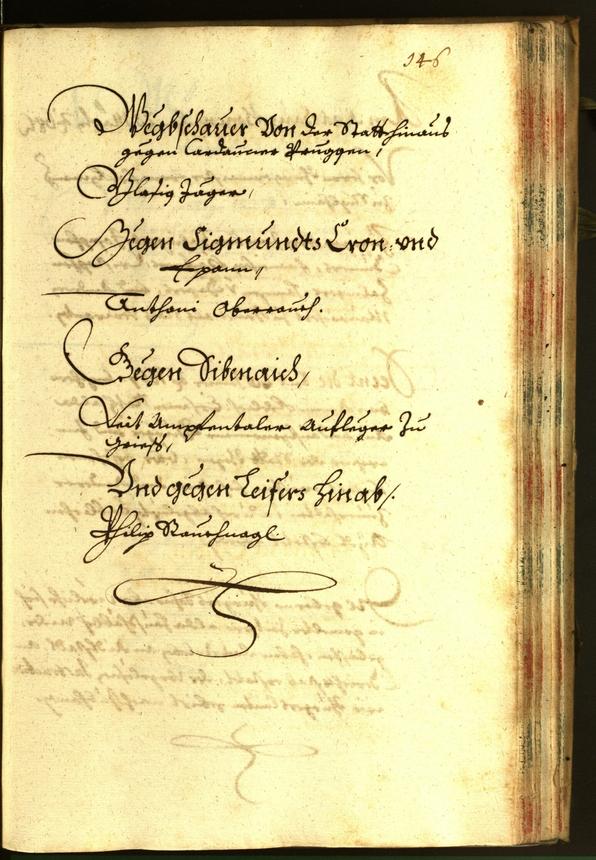 146
Wegbschauer Von der Statt hinaus
gegen Cardauner Pruggen,
Blasig Jäger,
Gegen Sigmundts Cron, vnd
Epann,
Anthoni Oberrauch.
Gegen Sibenaich,
Veit Umpfentaler Aufleger zu
Griess,
Vnd gegen Leifers hinab,
Philip Rauchnagl